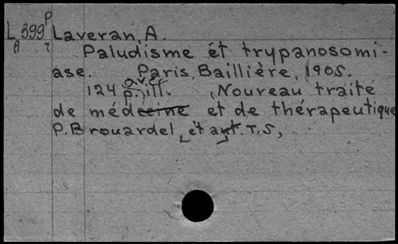 L 399 P Laveran, A.
A T
Paludisme ét trypanosomi-
ase. Paris, Baillière, 1905.
124 p. ill. (Nouveau traité
de médecine et de thérapeutique
P. Brouardel, ét T.S,